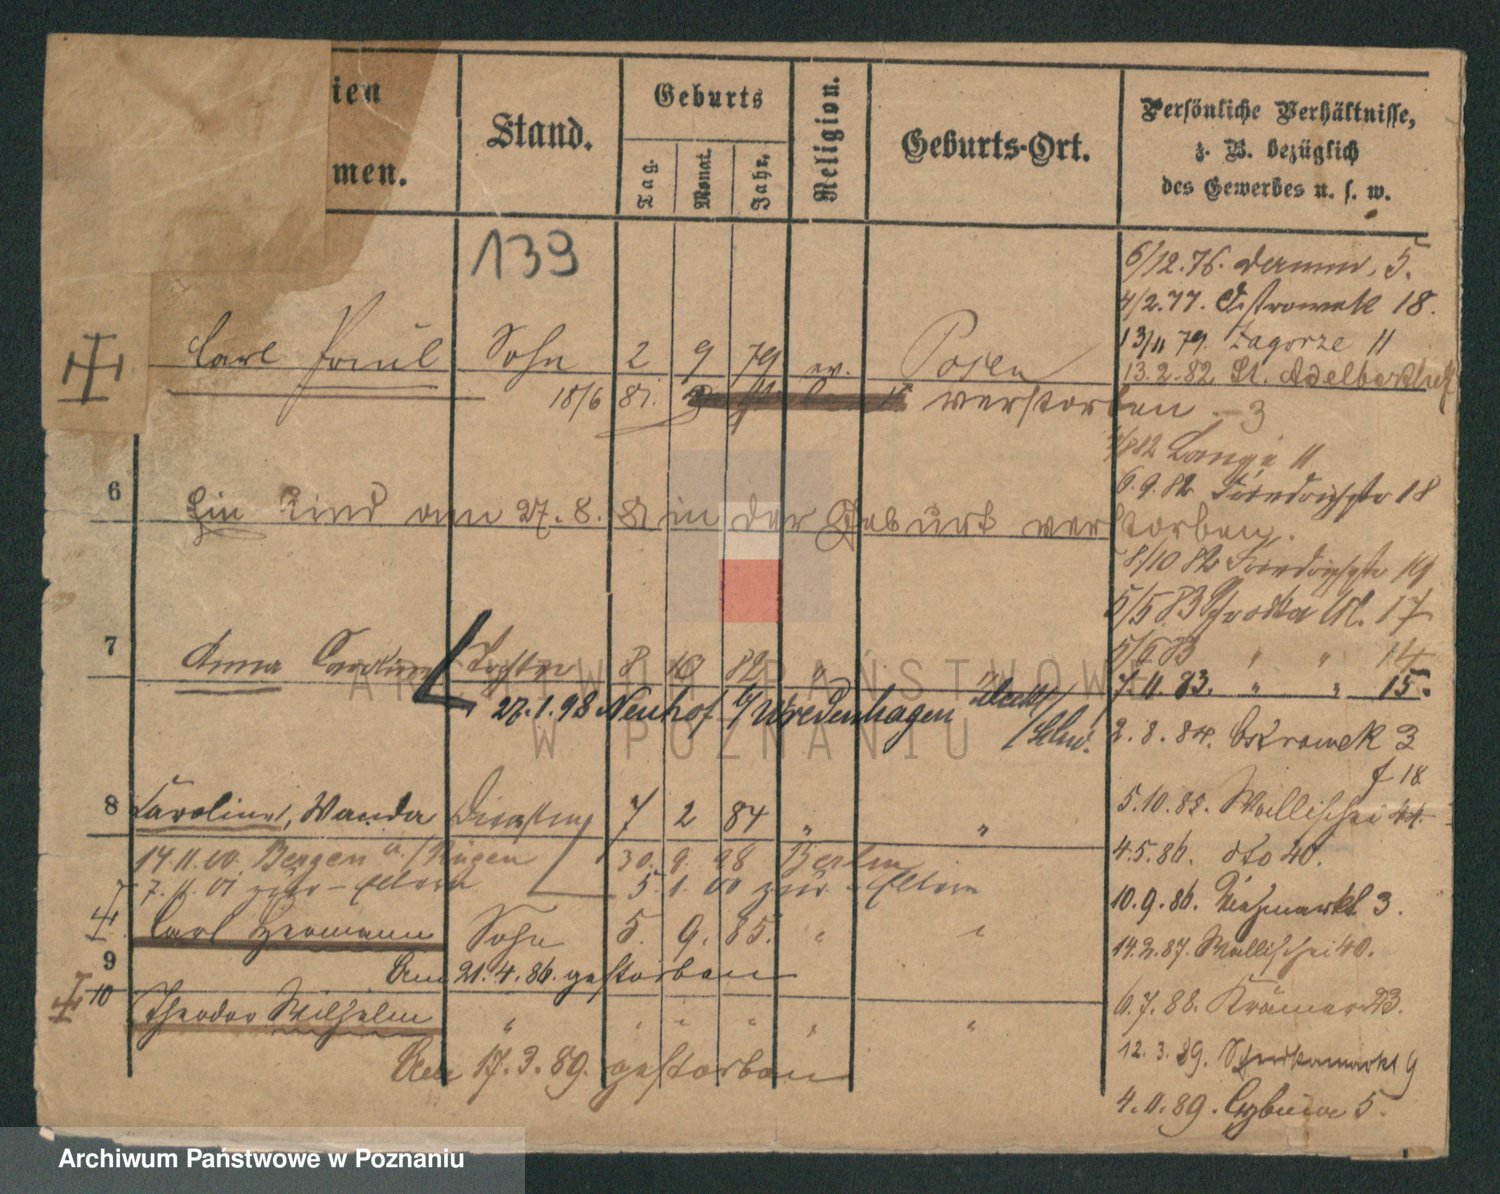 ien
men.
Stand.
Geburts
Tag.
Monat.
Jahr.
Religion.
Geburts-Ort.
Persönliche Verhältnisse,
z. B. bezüglich
des Gewerbes u. s. w.
139
6/12.76. 5.
4/2.77. Ostrowek 18.
13/11 79. Zagorze 11
Carl Paul Sohn 2 9 79 ev. Posen
13.2.82 St. Adelbertstr
18/6 81. verstorben 3
82 11
6 Ein Kind am 27.8.81 in der Geburt verstorben.
6.9.82 Friedrichstr 18
8/10 82 Friedrichstr 19
5/5 83 Schrodka M. 17
7 Anna Caroline Tochter 8 10 82 "
5/6 83 " " 14
7.11 83. " " 15.
27.1.98 Neuhof b/ Wredenhagen
2.8.84. Ostrowek 3
18.
8 Caroline, Wanda 7 2 84 " "
5.10.85. Wallischei 44.
14.11.00. Bergen a./Rügen 30. 9. 98 Berlin
4.5.86. dto 40.
7. 11. 01 zur Eltern 5. 1. 00 zur Eltern
10.9.86. Viehmarkt 3.
Carl Hermann Sohn 5. 9. 85. " "
14.2.87. Wallischei 40.
9 Am 21.4.86. gestorben
10 Theodor Wilhelm " " " " " "
6.7.88. Krämerstr 3.
Am 17.3.89. gestorben
12. 3. 89. 9
4.11.89. Cybina 5.
ARCHIWUM PAŃSTWOWE
W POZNANIU
Archiwum Państwowe w Poznaniu